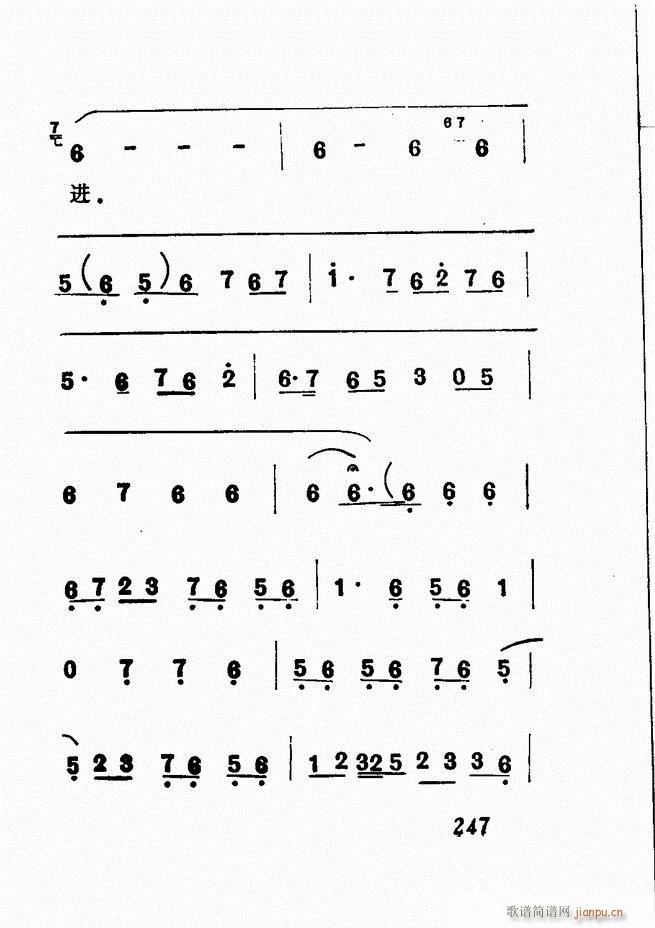 7 6 - - - | 6 - 6 67 6 |
进.
5 (6 5) 6 7 6 7 | i· 7 6 2 7 6 |
5· 6 7 6 2 | 6·7 6 5 3 0 5 |
6 7 6 6 | 6 6·(6 6 6
6 7 2 3 7 6 5 6 | 1· 6 5 6 1 |
0 7 7 6 | 5 6 5 6 7 6 5 |
5 2 3 7 6 5 6 | 1 2 3 2 5 2 3 3 6 |
247
歌谱简谱网 jianpu.cn